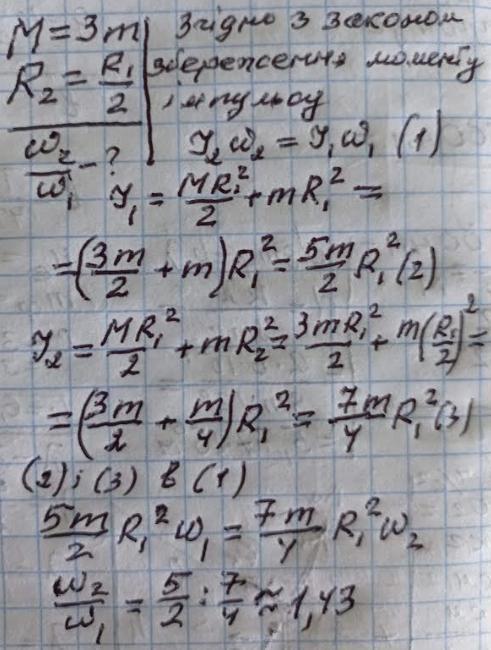 M = 3m
R₂ = R₁/2
ω₂/ω₁ - ?
Згідно з законом
збереження моменту
імпульсу
J₂ω₂ = J₁ω₁ (1)
J₁ = MR₁²/2 + mR₁² =
= (3m/2 + m)R₁² = 5m/2 R₁² (2)
J₂ = MR₁²/2 + mR₂² = 3mR₁²/2 + m(R₁/2)² =
= (3m/2 + m/4)R₁² = 7m/4 R₁² (3)
(2) і (3) в (1)
5m/2 R₁²ω₁ = 7m/4 R₁²ω₂
ω₂/ω₁ = 5/2 : 7/4 ≈ 1,43